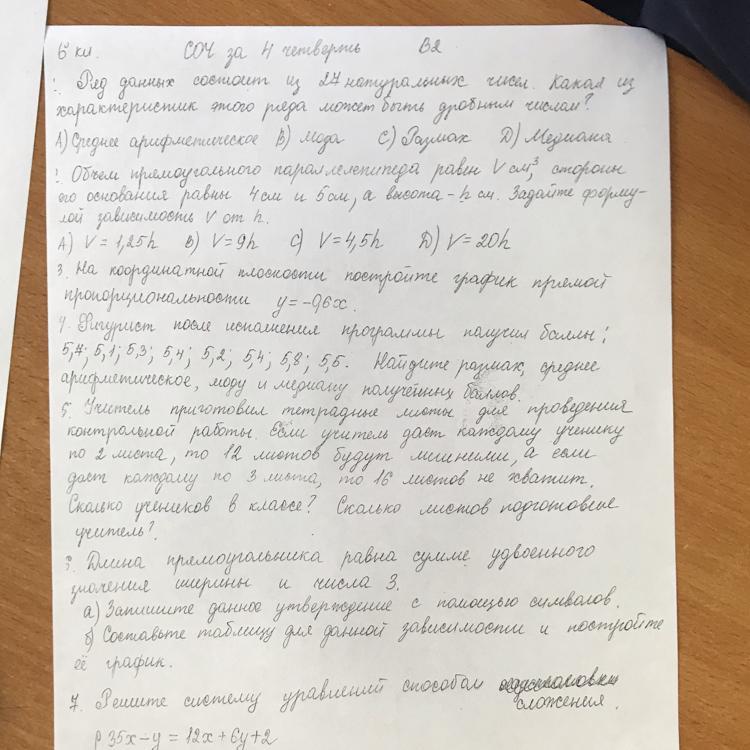 6 кл. СОЧ за 4 четверть В2
Ряд данных состоит из 27 натуральных чисел. Какая из
характеристик этого ряда может быть дробным числом?
А) Среднее арифметическое В) Мода С) Размах D) Медиана
Объем прямоугольного параллелепипеда равен V см³, стороны
его основания равны 4 см и 5 см, а высота - h см. Задайте форму-
лой зависимость V от h.
А) V = 1,25h В) V = 9h С) V = 4,5h D) V = 20h
3. На координатной плоскости постройте график прямой
пропорциональности y = -0,6x.
4. Фигурист после исполнения программы получил баллы:
5,7; 5,1; 5,3; 5,4; 5,2; 5,4; 5,8; 5,5. Найдите размах, среднее
арифметическое, моду и медиану полученных баллов.
5. Учитель приготовил тетрадные листы для проведения
контрольной работы. Если учитель даст каждому ученику
по 2 листа, то 12 листов будут лишними, а если
даст каждому по 3 листа, то 16 листов не хватит.
Сколько учеников в классе? Сколько листов подготовил
учитель?
Длина прямоугольника равна сумме удвоенного
значения ширины и числа 3.
а) Запишите данное утверждение с помощью символов.
б) Составьте таблицу для данной зависимости и постройте
её график.
7. Решите систему уравнений способом
сложения.
35x - y = 12x + 6y + 2